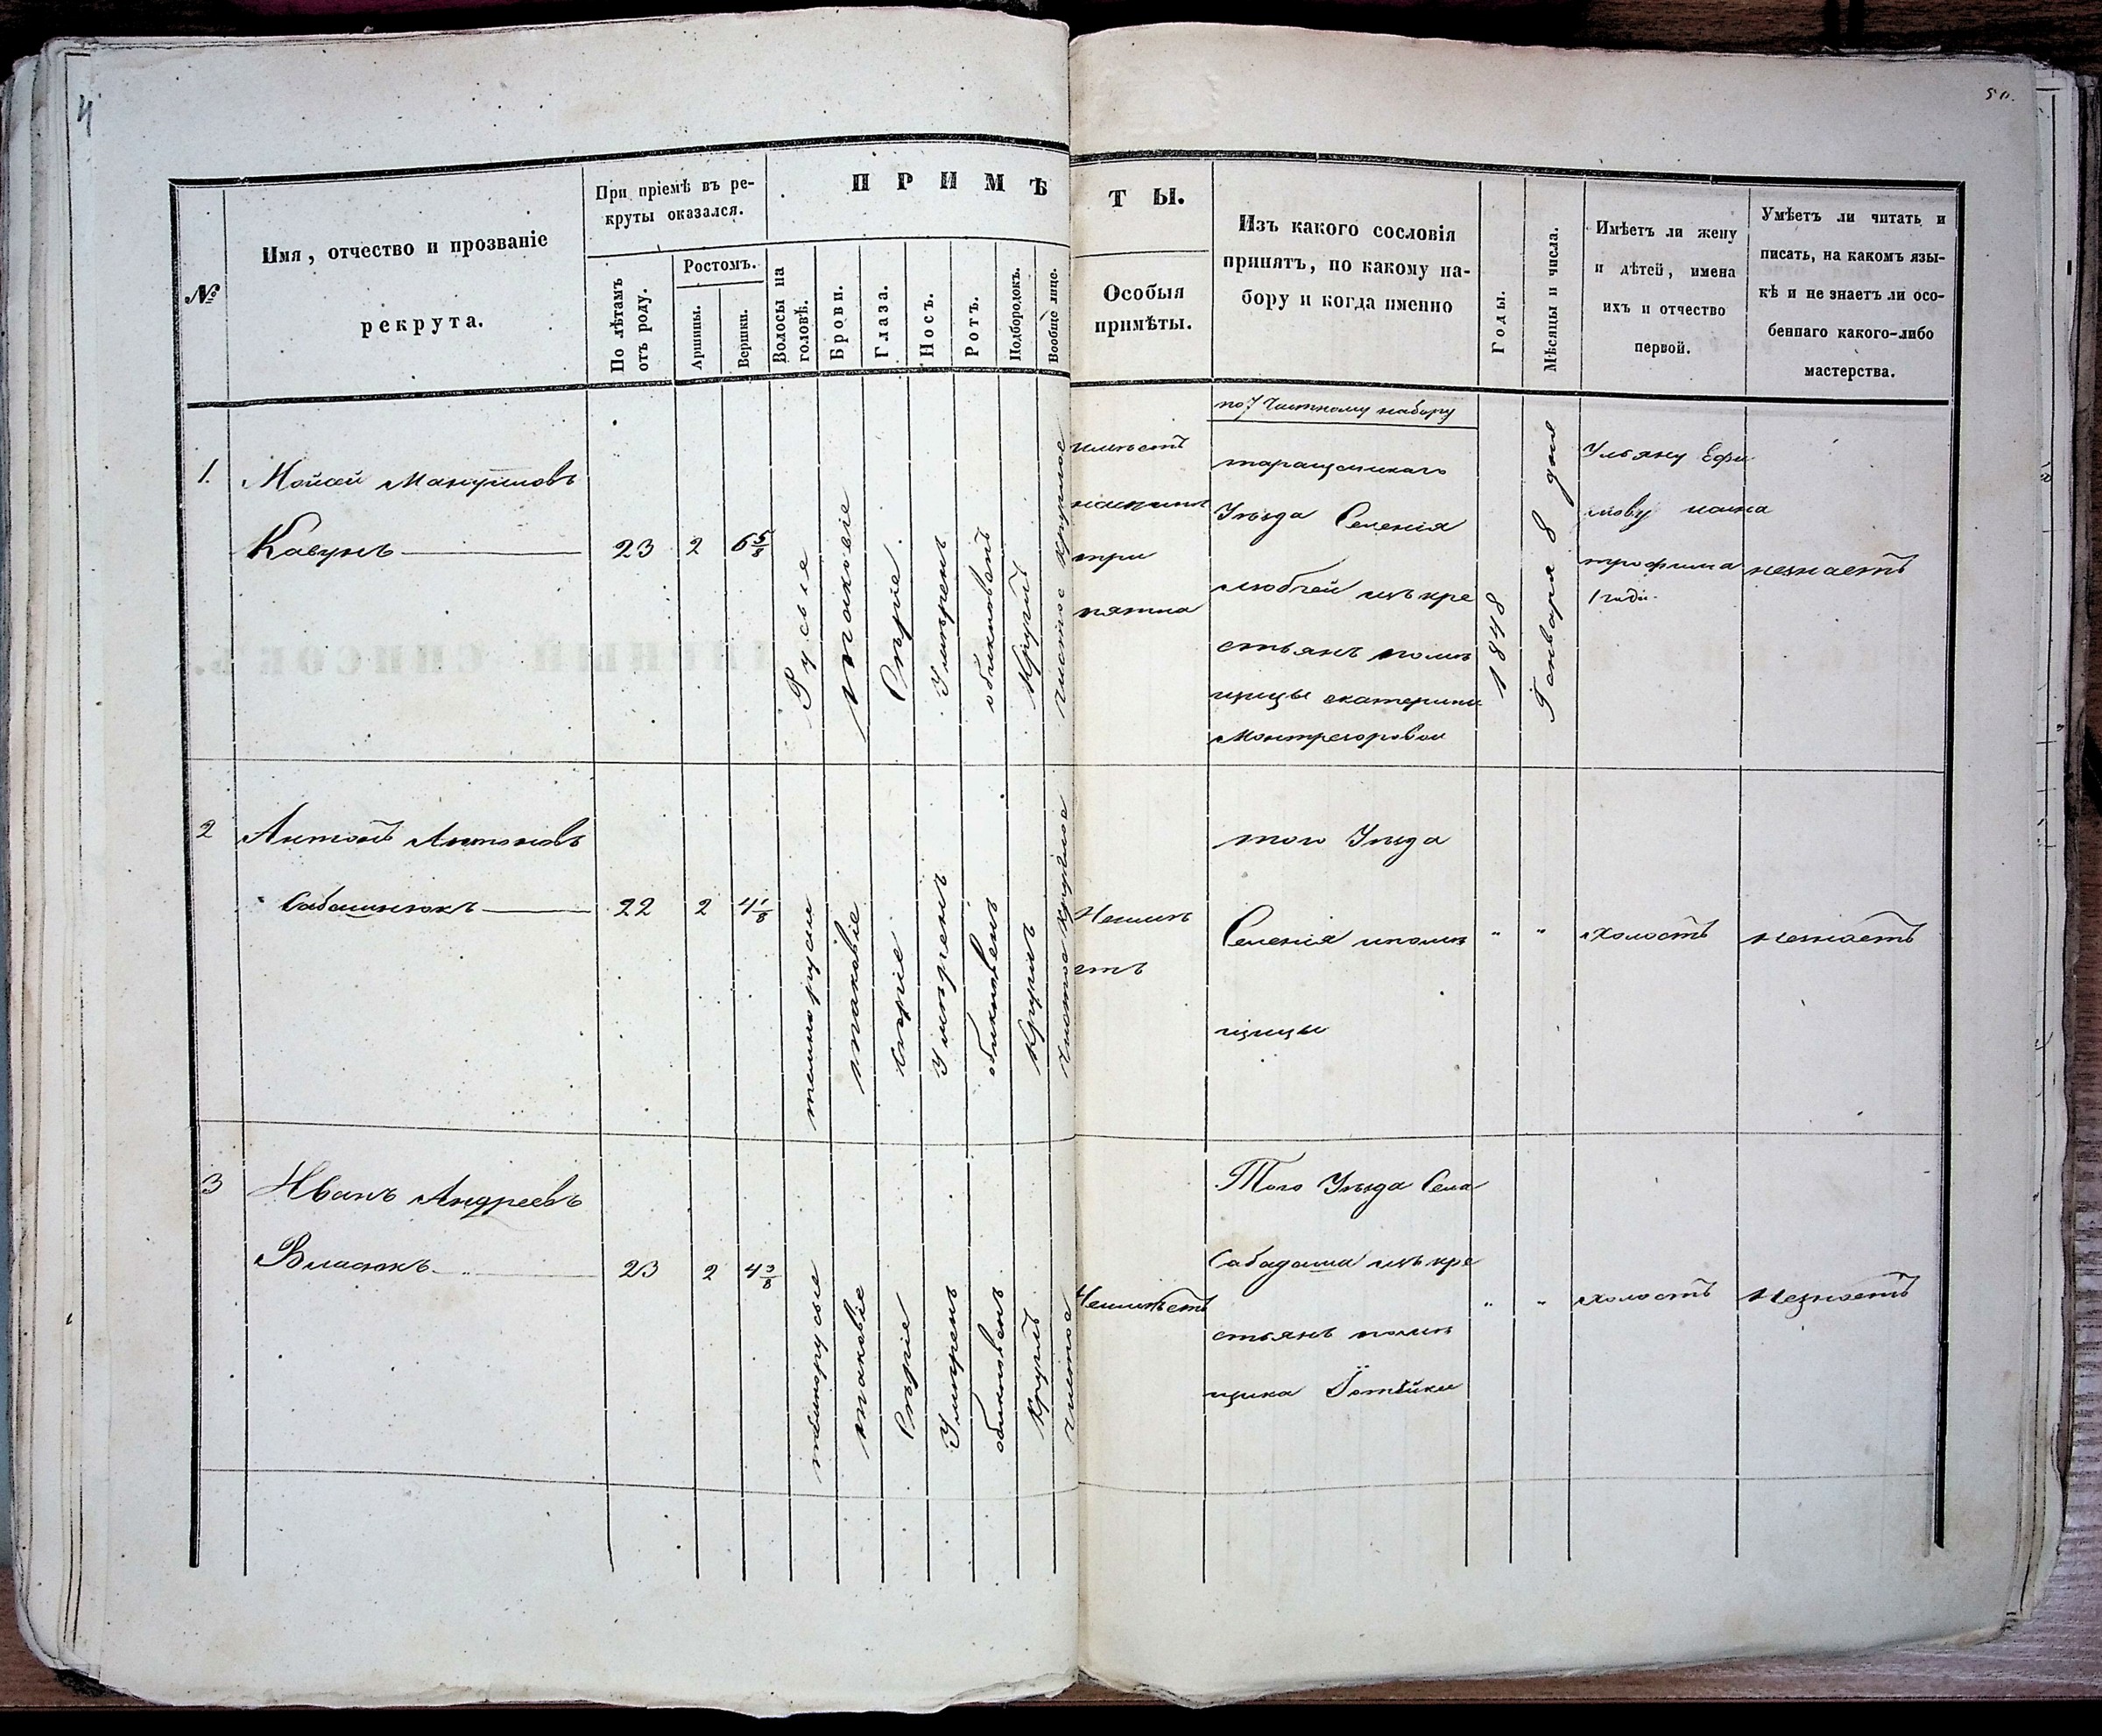 4
50.
№
Имя, отчество и прозваніе
рекрута.
При пріемѣ въ ре-
круты оказался.
По лѣтамъ
отъ роду.
Ростомъ.
Аршины.
Вершки.
ПРИМѢ
ТЫ.
Волосы на
головѣ.
Брови.
Глаза.
Носъ.
Ротъ.
Подбородокъ.
Вообще лице.
Особыя
примѣты.
Изъ какого сословія
принятъ, по какому на-
бору и когда именно
Годы.
Мѣсяцы и числа.
Имѣетъ ли жену
и дѣтей, имена
ихъ и отчество
первой.
Умѣетъ ли читать и
писать, на какомъ язы-
кѣ и не знаетъ ли осо-
беннаго какого-либо
мастерства.
1.
Мойсей Мануиловъ
Кавунъ
23
2
6 5/8
Русые
таковіе
Сѣріе
Умѣренъ
обикновенъ
Кругл
чистое круглое
имѣетъ
три
пятна
по 7 Частному набору
таращанскаго
Уѣзда Селенія
изъ кре
стьянъ помѣ
щицы екатерины
1848
Генваря 8 дня
Ульяну Ефи
мову сына
трофима
1 годъ
незнаетъ
2
Антонъ Антоновъ
Сабашнюкъ
22
2
4 1/8
темнорусые
таковіе
Сѣріе
Умѣренъ
обикновенъ
Круглъ
чистое круглое
Неимѣ
етъ
того Уѣзда
Селенія ипомѣ
щицы
"
"
холостъ
незнаетъ
3
Иванъ Андреевъ
Власюкъ
23
2
4 3/8
темнорусые
таковіе
Сѣріе
Умѣренъ
обикновенъ
Круглъ
чистое
Неимѣетъ
Того Уѣзда Села
Сабадаша изъ кре
стьянъ помѣ
щика
"
"
холостъ
Незнаетъ